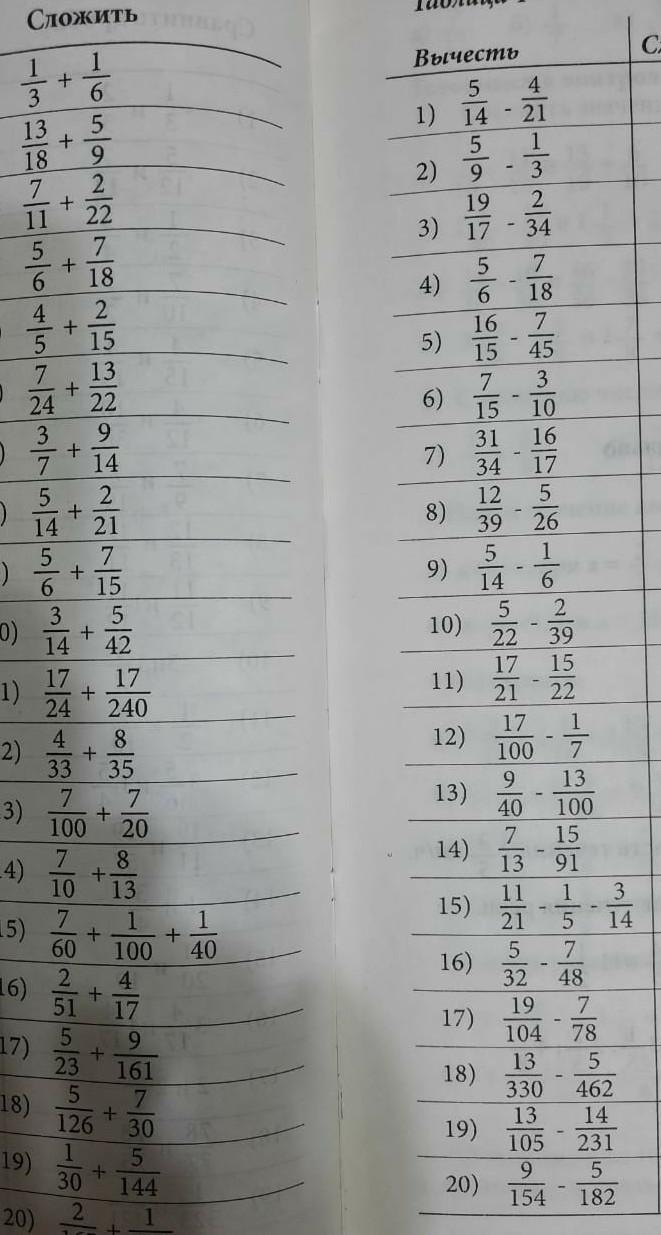 Сложить
1/3 + 1/6
13/18 + 5/9
7/11 + 2/22
5/6 + 7/18
4/5 + 2/15
7/24 + 13/22
) 3/7 + 9/14
) 5/14 + 2/21
) 5/6 + 7/15
0) 3/14 + 5/42
1) 17/24 + 17/240
2) 4/33 + 8/35
3) 7/100 + 7/20
4) 7/10 + 8/13
15) 7/60 + 1/100 + 1/40
16) 2/51 + 4/17
17) 5/23 + 9/161
18) 5/126 + 7/30
19) 1/30 + 5/144
20) 2/ + 1/
Таблица
Вычесть
1) 5/14 - 4/21
2) 5/9 - 1/3
3) 19/17 - 2/34
4) 5/6 - 7/18
5) 16/15 - 7/45
6) 7/15 - 3/10
7) 31/34 - 16/17
8) 12/39 - 5/26
9) 5/14 - 1/6
10) 5/22 - 2/39
11) 17/21 - 15/22
12) 17/100 - 1/7
13) 9/40 - 13/100
14) 7/13 15/91
15) 11/21 1/5 3/14
16) 5/32 - 7/48
17) 19/104 - 7/78
18) 13/330 - 5/462
19) 13/105 - 14/231
20) 9/154 - 5/182